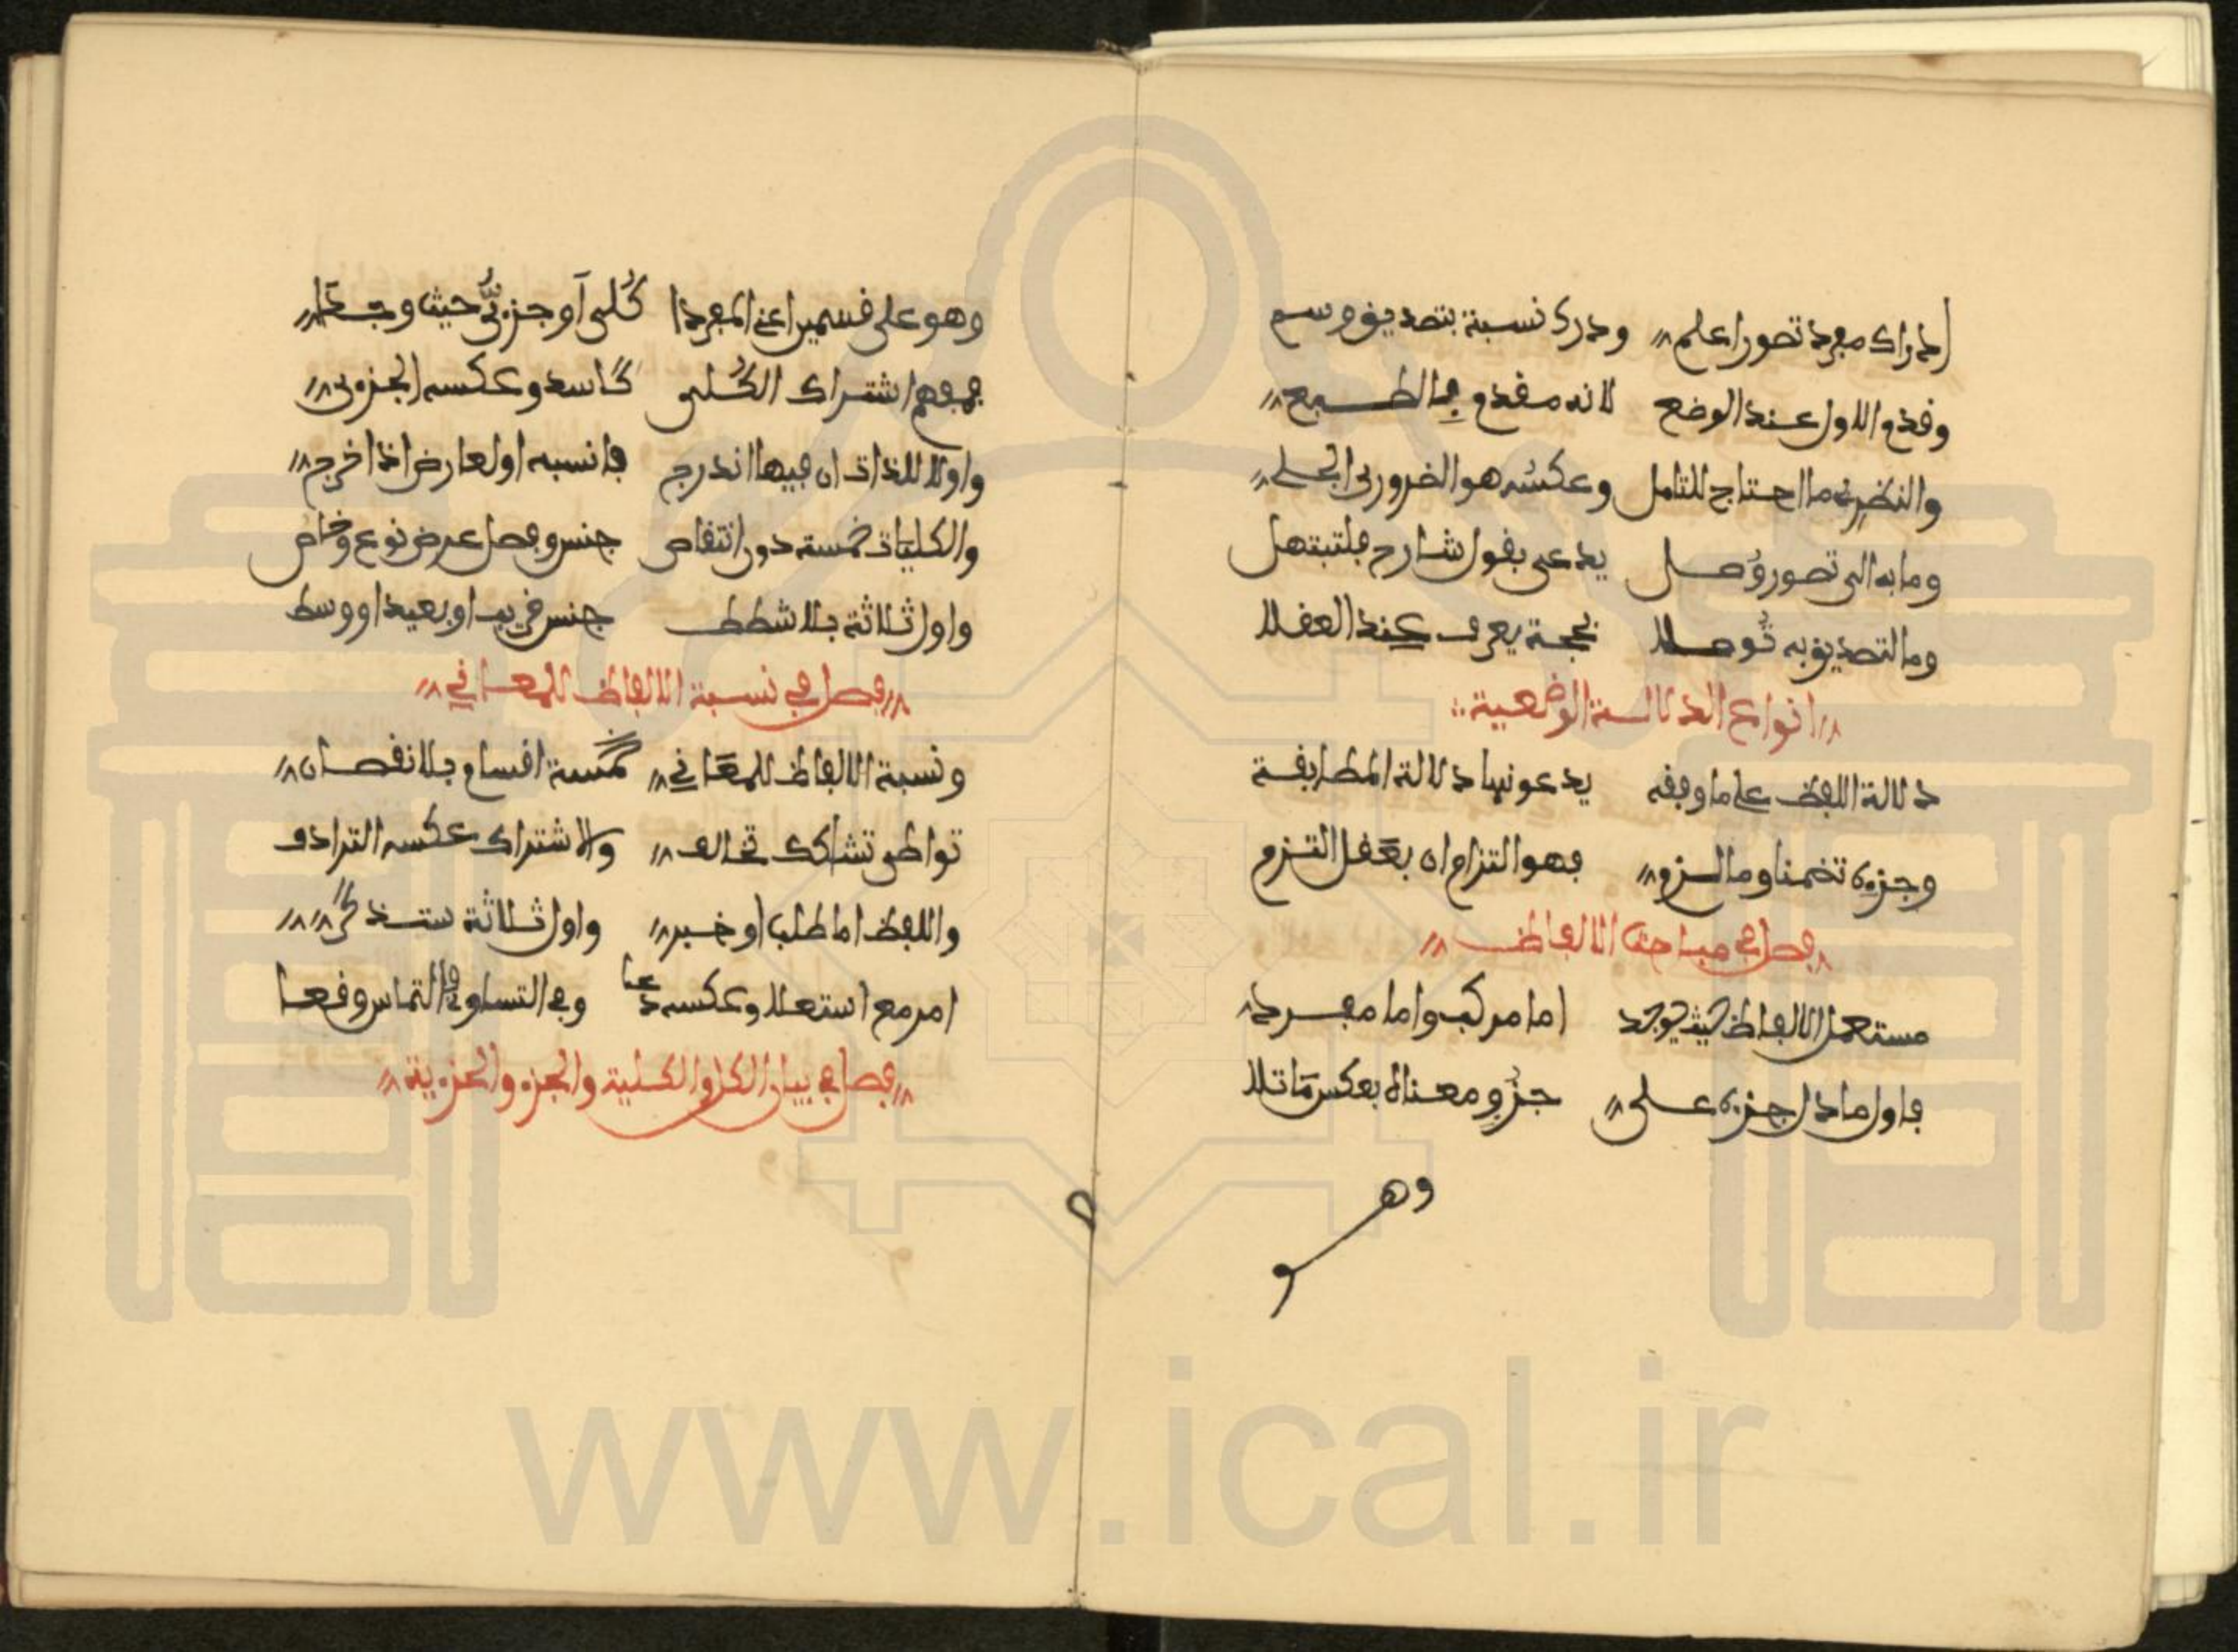 إدراك مفرد تصورا علم ودرك نسبة بتصديق وسم
وقدم الاول عند الوضع لانه مقدم بالطبع
والنظري ما احتاج للتامل وعكسه هو الضروري الجلي
وما به الى تصور وصل يدعى بقول شارح فلتبتهل
وما لتصديق به توصلا بحجة يعرف عند العقلا
انواع الدلالة الوضعية
دلالة اللفظ على ما وافقه يدعونها دلالة المطابقة
وجزءه تضمنا وما لزم فهو التزام ان بعقل التزم
فصل في مباحث الالفاظ
مستعمل الالفاظ حيث يوجد اما مركب واما مفرد
فاول ما دل جزءه على جزء معناه بعكس ما تلا
وهو
وهو على قسمين اعني المفردا كلي أو جزءي حيث وجدا
فمفهم اشتراك الكلي كاسد وعكسه الجزءي
واولا للذات ان فيها اندرج فانسبه او لعارض اذا خرج
والكليات خمسة دون انتقاص جنس وفصل عرض نوع وخاص
واول ثلاثة بلا شطط جنس قريب او بعيد او وسط
فصل في نسبة الالفاظ للمعاني
ونسبة الالفاظ للمعاني خمسة اقسام بلا نقصان
تواطى تشاكك تخالف والاشتراك عكسه الترادف
واللفظ اما طلب او خبر واول ثلاثة ستذكر
امر مع استعلا وعكسه دعا وفي التساوي فالتماس وقعا
فصل في بيان الكل والكلية والجزء والجزءية
www.ical.ir